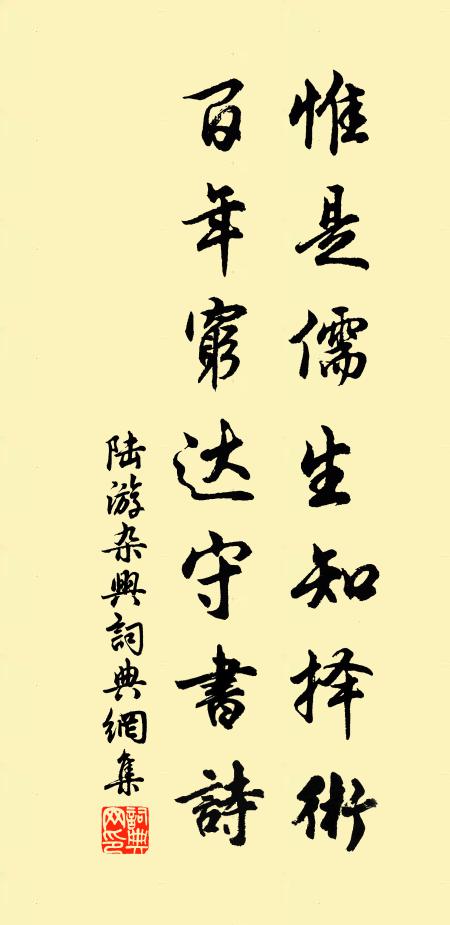 惟是儒生知择術
百年窮达守書詩
陆游杂興詞典網集
詞典网印